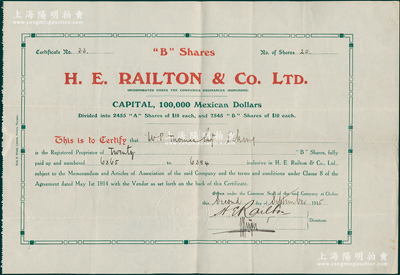 上海阳明拍卖
Certificate No. 33. "B" Shares No. of Shares 20.
H. E. RAILTON & Co. LTD.
CAPITAL, 100,000 Mexican Dollars
Divided into 2455 "A" Shares of $10 each, and 7545 "B" Shares of $10 each.
This is to Certify that
is the Registered Proprietor of Twenty "B" Shares, fully
paid up and numbered to inclusive in H. E. Railton & Co., Ltd.,
subject to the Memorandum and Articles of Association of the said Company and the terms and conditions under Clause 8 of the
Agreement dated May 1st 1914 with the Vendor as set forth on the back of this Certificate.
Given under the Common Seal of the said Company at
this Second day of 1915
H E Railton
Directors.